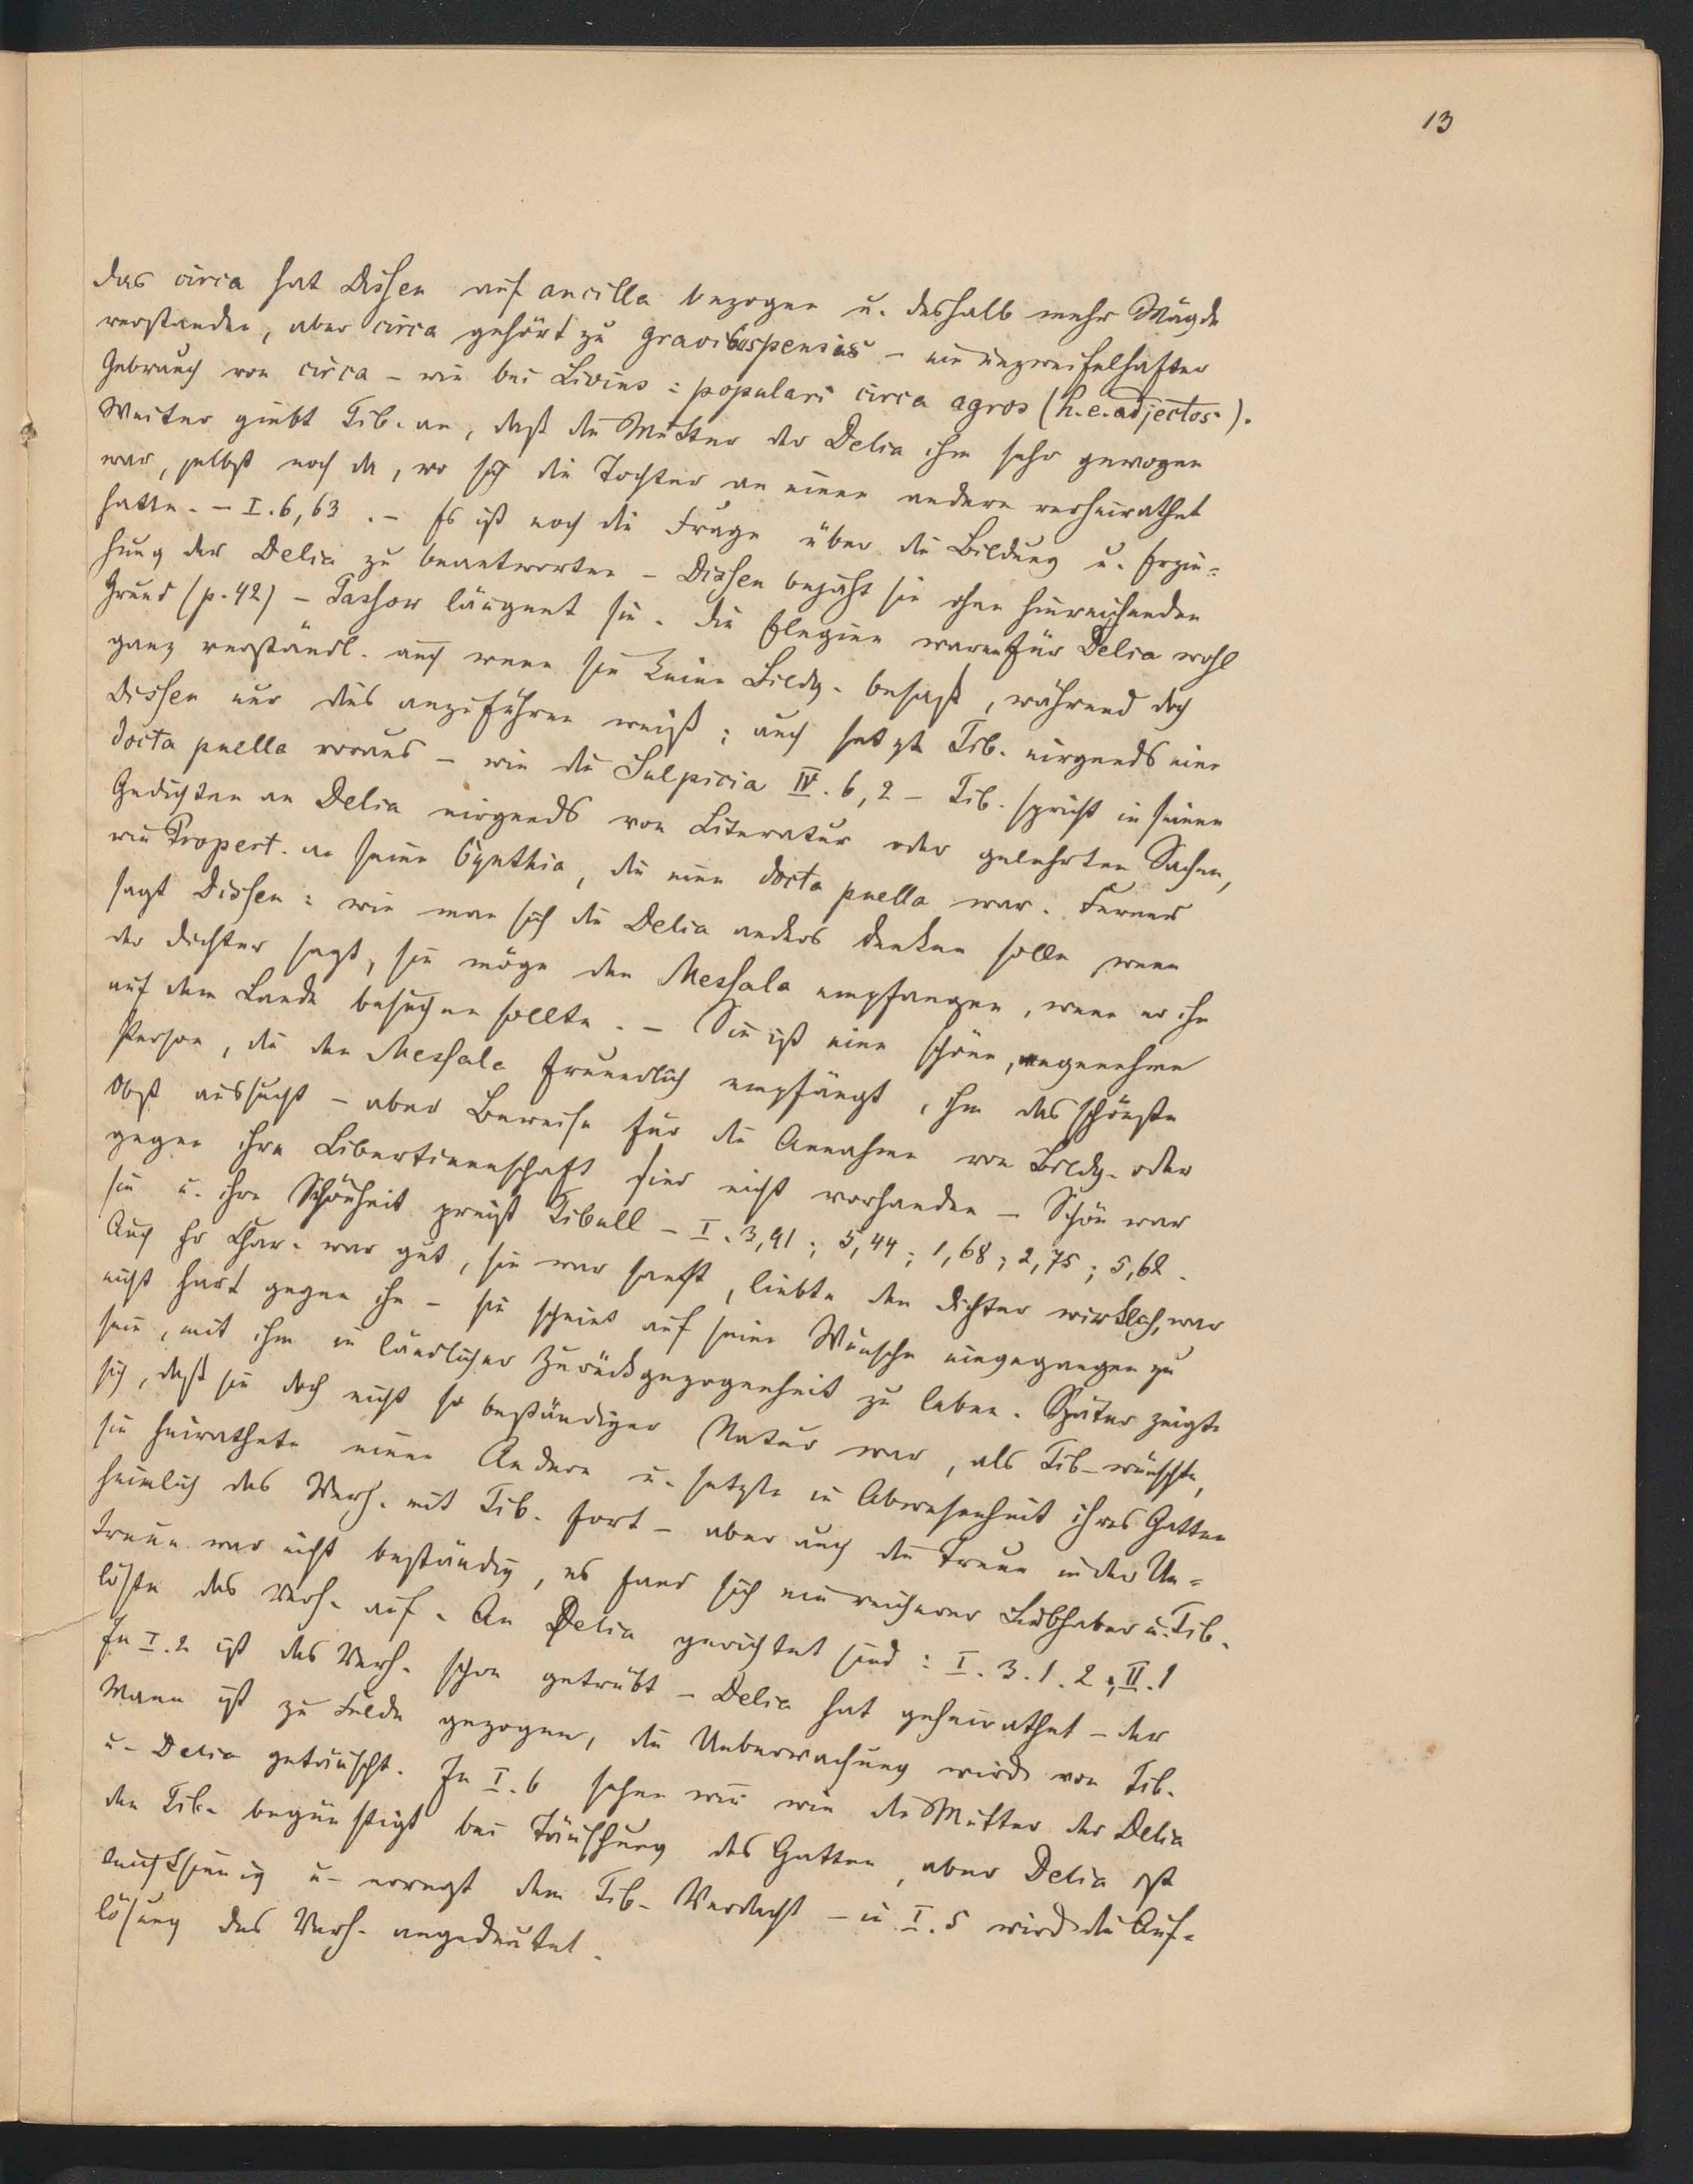 13
Das circa hat Dissen auf ancilla bezogen u. deshalb mehr Mägde
verstanden, aber circa gehört zu gravibus pensis – ein unzweifelhafter
Gebrauch von circa – wie bei Livius: populari circa agros (h. e. adjectos).
Weiter giebt Tib. an, daß die Mutter der Delia ihm sehr gewogen
war, selbst noch da, wo sich die Tochter an einen andern verheirathet
hatte. – I. 6, 63. – Es ist noch die Frage über die Bildung u. Erzie=
hung der Delia zu beantworten – Dissen bejaht sie ohne hinreichenden
Grund (p. 42) – Passow läugnet sie. Die Elegien waren für Delia wohl
ganz verständl. auch wenn sie keine Bildg. besaß, während doch
Dissen nur dies anzuführen weiß; auch setzt Tib. nirgends eine
docta puella voraus – wie die Sulpicia IV. 6, 2 – Tib. spricht in seinen
Gedichten an Delia nirgends von Literatur oder gelehrten Sachen,
wie Propert. an seine Cynthia, die eine docta puella war. Ferner
sagt Dissen: wie man sich die Delia anders denken solle, wenn
der Dichter sagt, sie möge den Messala empfangen, wenn er ihn
auf dem Lande besuchen sollte. – Sie ist eine schöne, angenehme
Person, die den Messala freundlich empfängt, ihm das schönste
Obst aussucht – aber Beweise für die Annahme von Bildg. oder
gegen ihre Libertinenschaft sind nicht vorhanden – Schön war
sie u. ihre Schönheit preist Tibull – I. 3, 91; 5, 44; 1, 68; 2, 75; 5, 62.
Auch ihr Char. war gut, sie war sanft, liebte den Dichter wirklich, war
nicht hart gegen ihn – sie scheint auf seine Wünsche eingegangen zu
sein, mit ihm in ländlicher Zurückgezogenheit zu leben. Später zeigte
sich, daß sie doch nicht so beständiger Natur war, als Tib. wünschte,
sie heirathete einen Andern u. setzte in Abwesenheit ihres Gatten
heimlich das Verh. mit Tib. fort – aber auch die Treue in der Un=
treue war nicht beständig, es fand sich ein reicherer Liebhaber u. Tib.
löste das Verh. auf. An Delia gerichtet sind: I. 3. 1. 2; II. 1
In I. 2 ist das Verh. schon getrübt – Delia hat geheirathet – der
Mann ist zu Felde gezogen, die Ueberwachung wird von Tib.
u. Delia getäuscht. In I. 6 sehen wir wie die Mutter der Delia
den Tib. begünstigt bei Täuschung des Gatten, aber Delia ist
leichtsinnig u. erregt dem Tib. Verdacht – in I. 5 wird die Auf=
lösung des Verh. angedeutet.